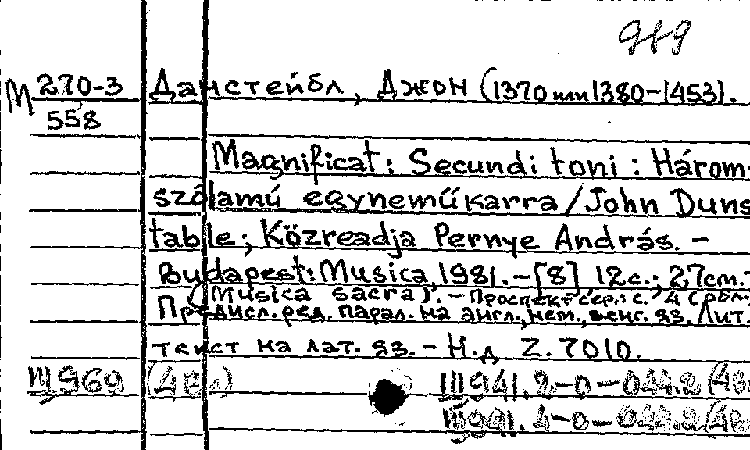 989
М 270-3 Данстейбл, Джон (1370 или 1380-1453).
558
Magnificat: Secundi toni: Három-
szólamú egyneműkarra/John Duns
table; Közreadja Pernye András. -
Budapest: Musica, 1981. - [8] 12c.; 27cm. -
(Musica sacra). - Проспект сер.: с.
Предисл. ред. парал. на англ., нем., венг. яз. Лит.
текст на лат. яз. - Н.д Z. 7010.
Ш969 Ш941.2-0-044.2
Ш941.4-0-044.2